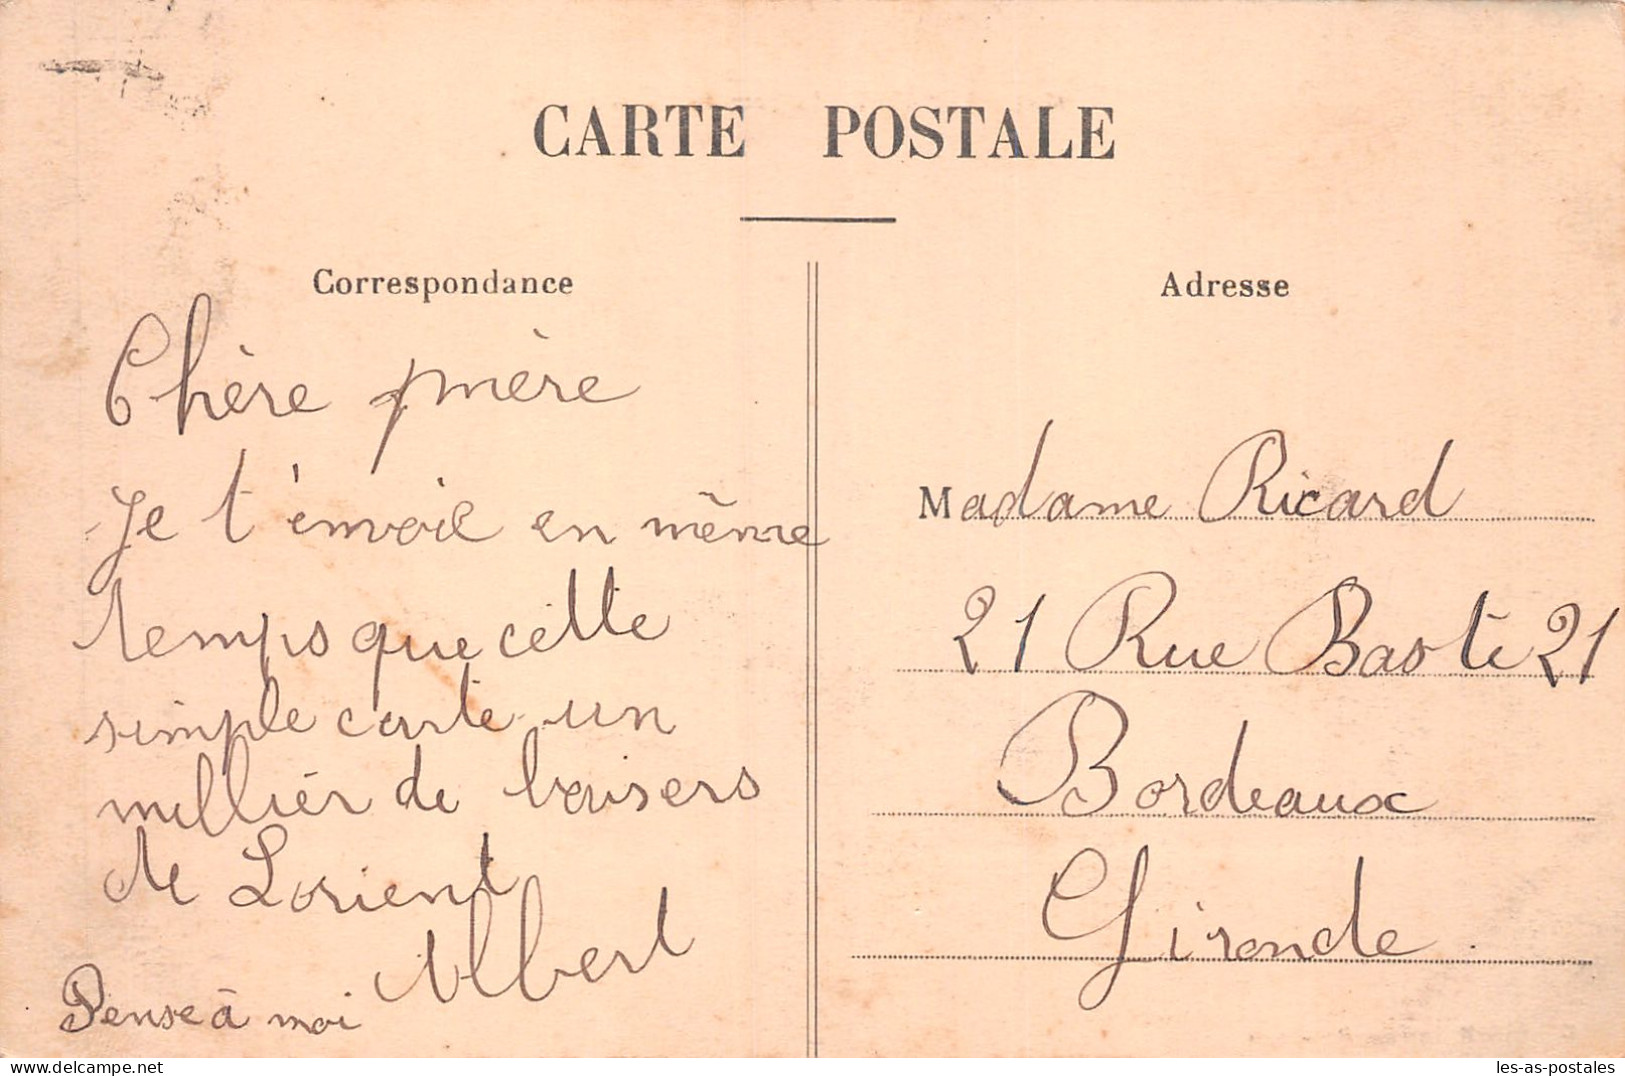 CARTE POSTALE
Correspondance
Chère mère
Je t'envoie en même
temps que cette
simple carte un
millier de baisers
de Lorient
Albert
Pense à moi
Adresse
Madame Ricard
21 Rue Baste 21
Bordeaux
Gironde
les-as-postales